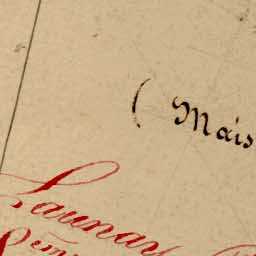 ( Mais
Launay